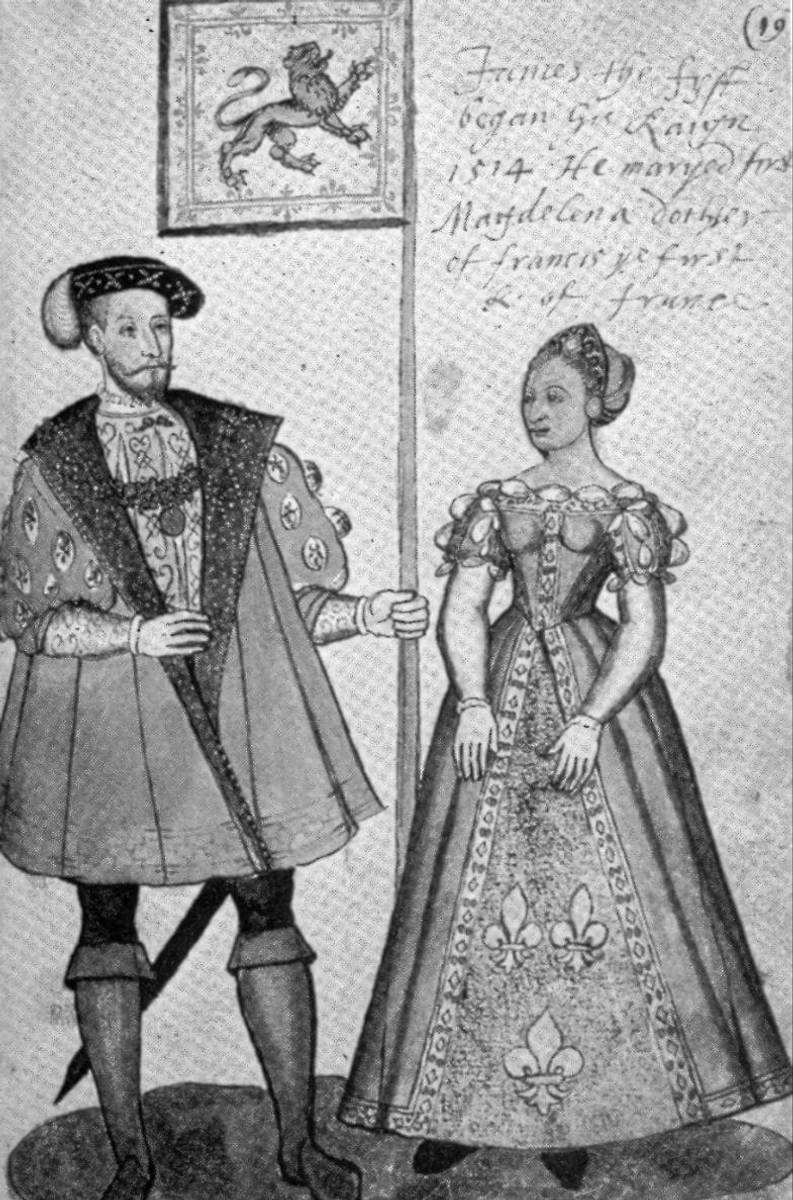 (19
James the fyft
began his Raign
1514 He maryed first
Magdelena dother
of francis ye first
K. of france